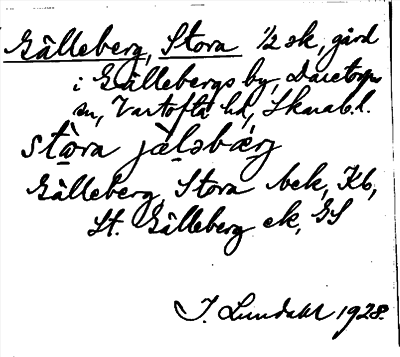 Gälleberg, Stora ½ sk, gård
i Gällebergs by, Daretorps
sn, Vartofta hd, Skarab.l.
stòra jàlsbærj
Gälleberg, Stora bek, Kb,
St. Gälleberg ek, GS
J. Lundahl 1928.